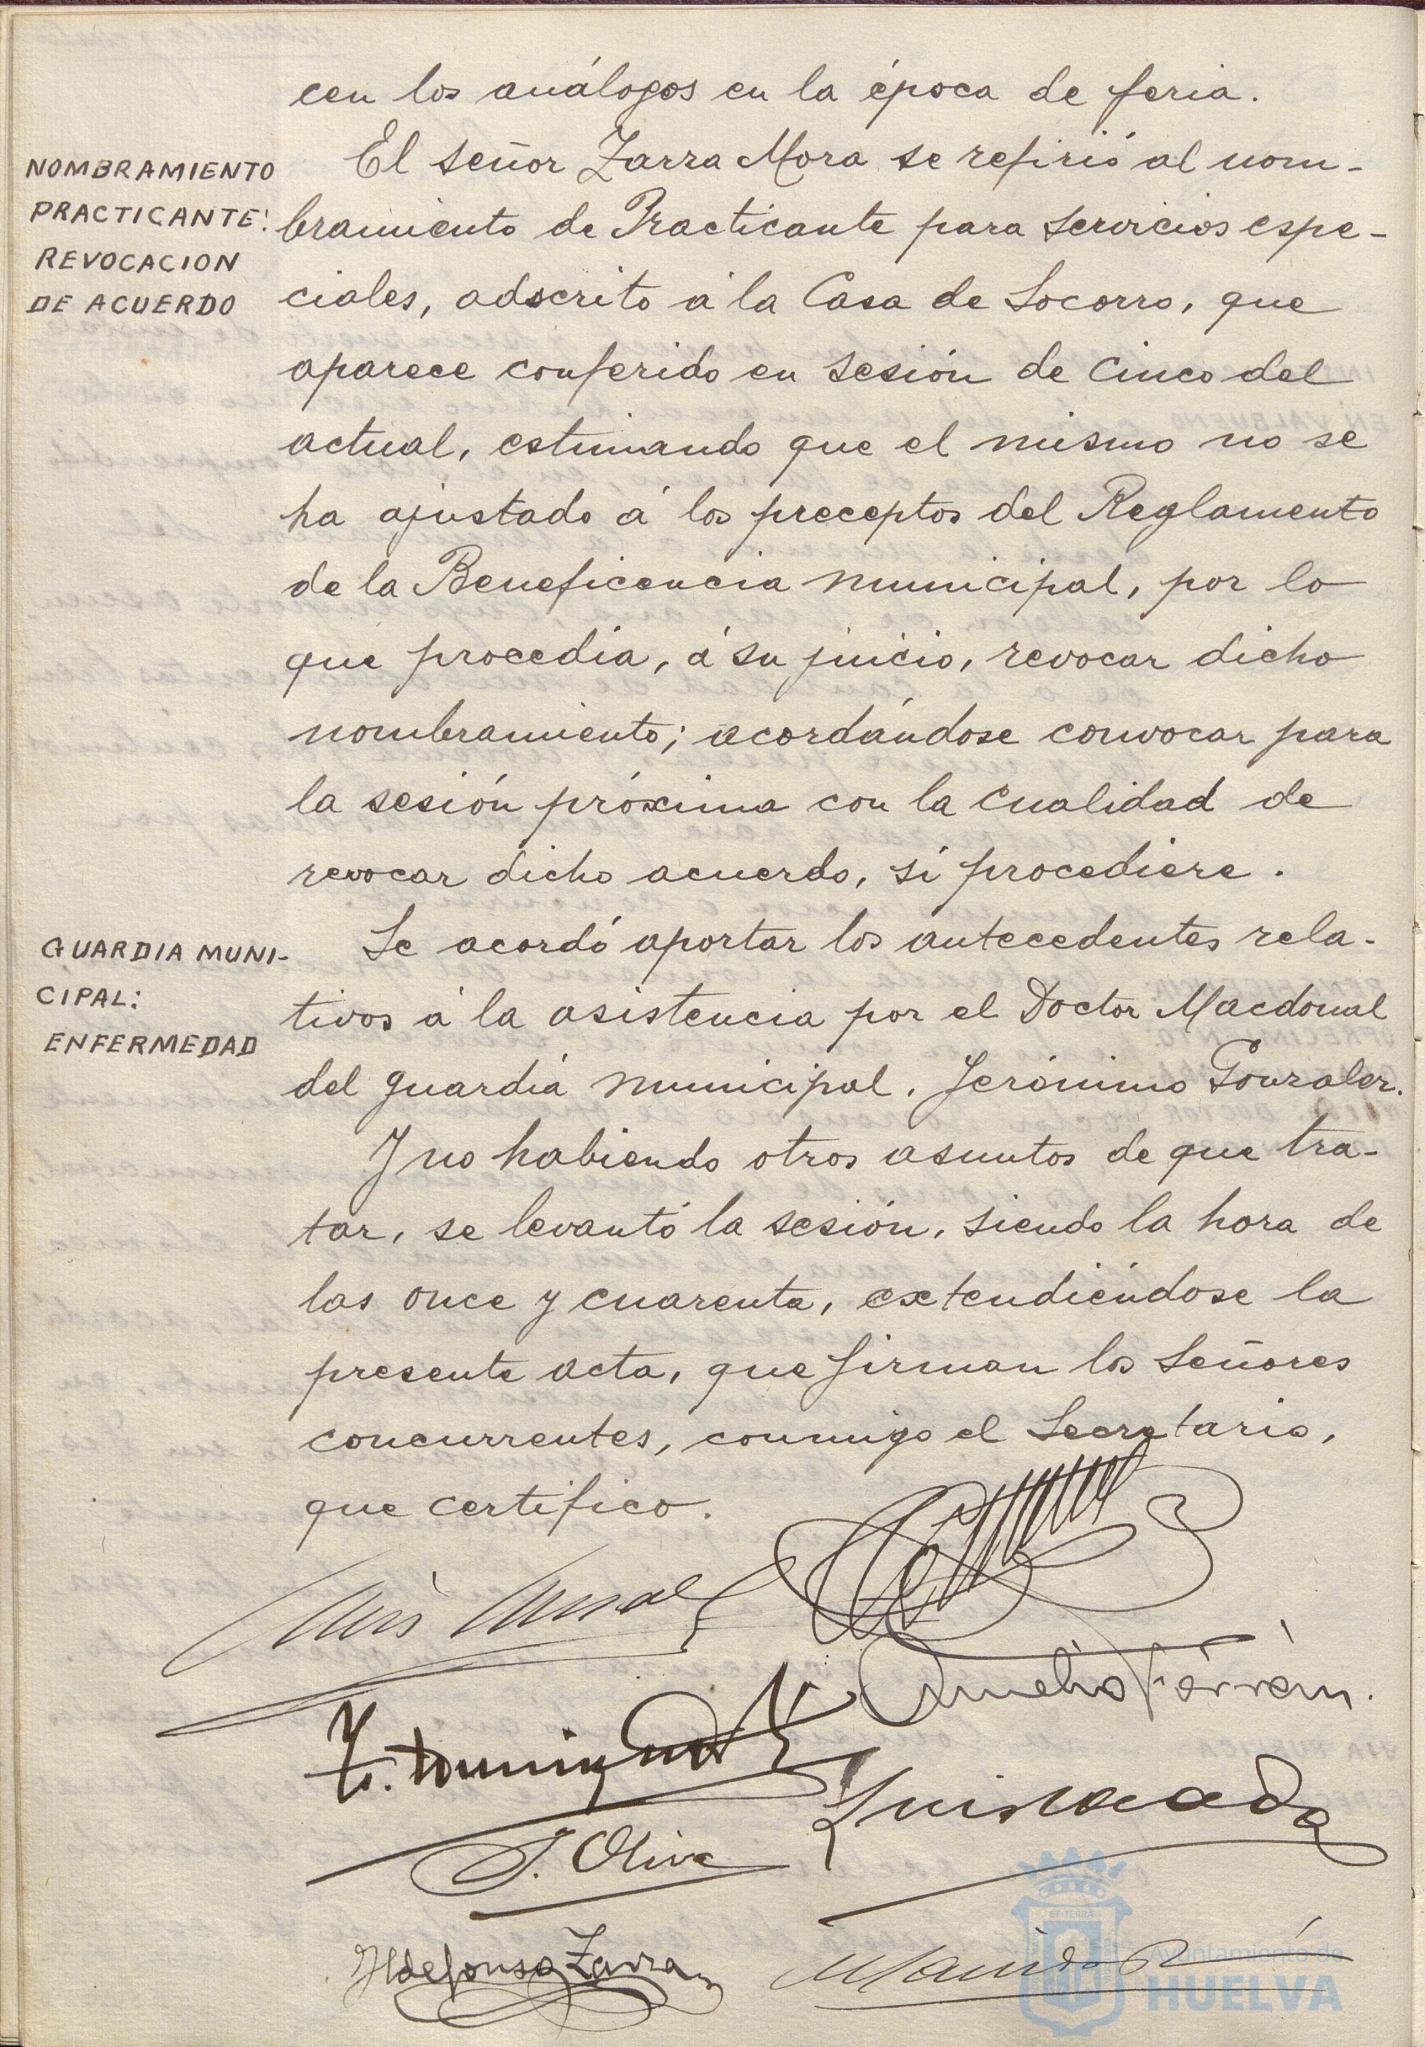 cen los análogos en la época de feria.
NOMBRAMIENTO
PRACTICANTE:
REVOCACION
DE ACUERDO
El señor Zarra Mora se refirió al nom-
bramiento de Practicante para servicios espe-
ciales, adscrito á la Casa de Socorro, que
aparece conferido en sesión de cinco del
actual, estimando que el mismo no se
ha ajustado á los preceptos del Reglamento
de la Beneficencia municipal, por lo
que procedia, á su juicio, revocar dicho
nombramiento; acordándose convocar para
la sesión próxima con la cualidad de
revocar dicho acuerdo, si procediere.
GUARDIA MUNI-
CIPAL:
ENFERMEDAD
Se acordó aportar los antecedentes rela-
tivos á la asistencia por el Doctor Macdonal
del guardia municipal, Jerónimo Gonzalez.
Y no habiendo otros asuntos de que tra-
tar, se levantó la sesión, siendo la hora de
las once y cuarenta, extendiéndose la
presente acta, que firman los Señores
concurrentes, conmigo el Secretario,
que certifico.
J. Oliva
Ildefonso Zarra
Ayuntamiento de
HUELVA